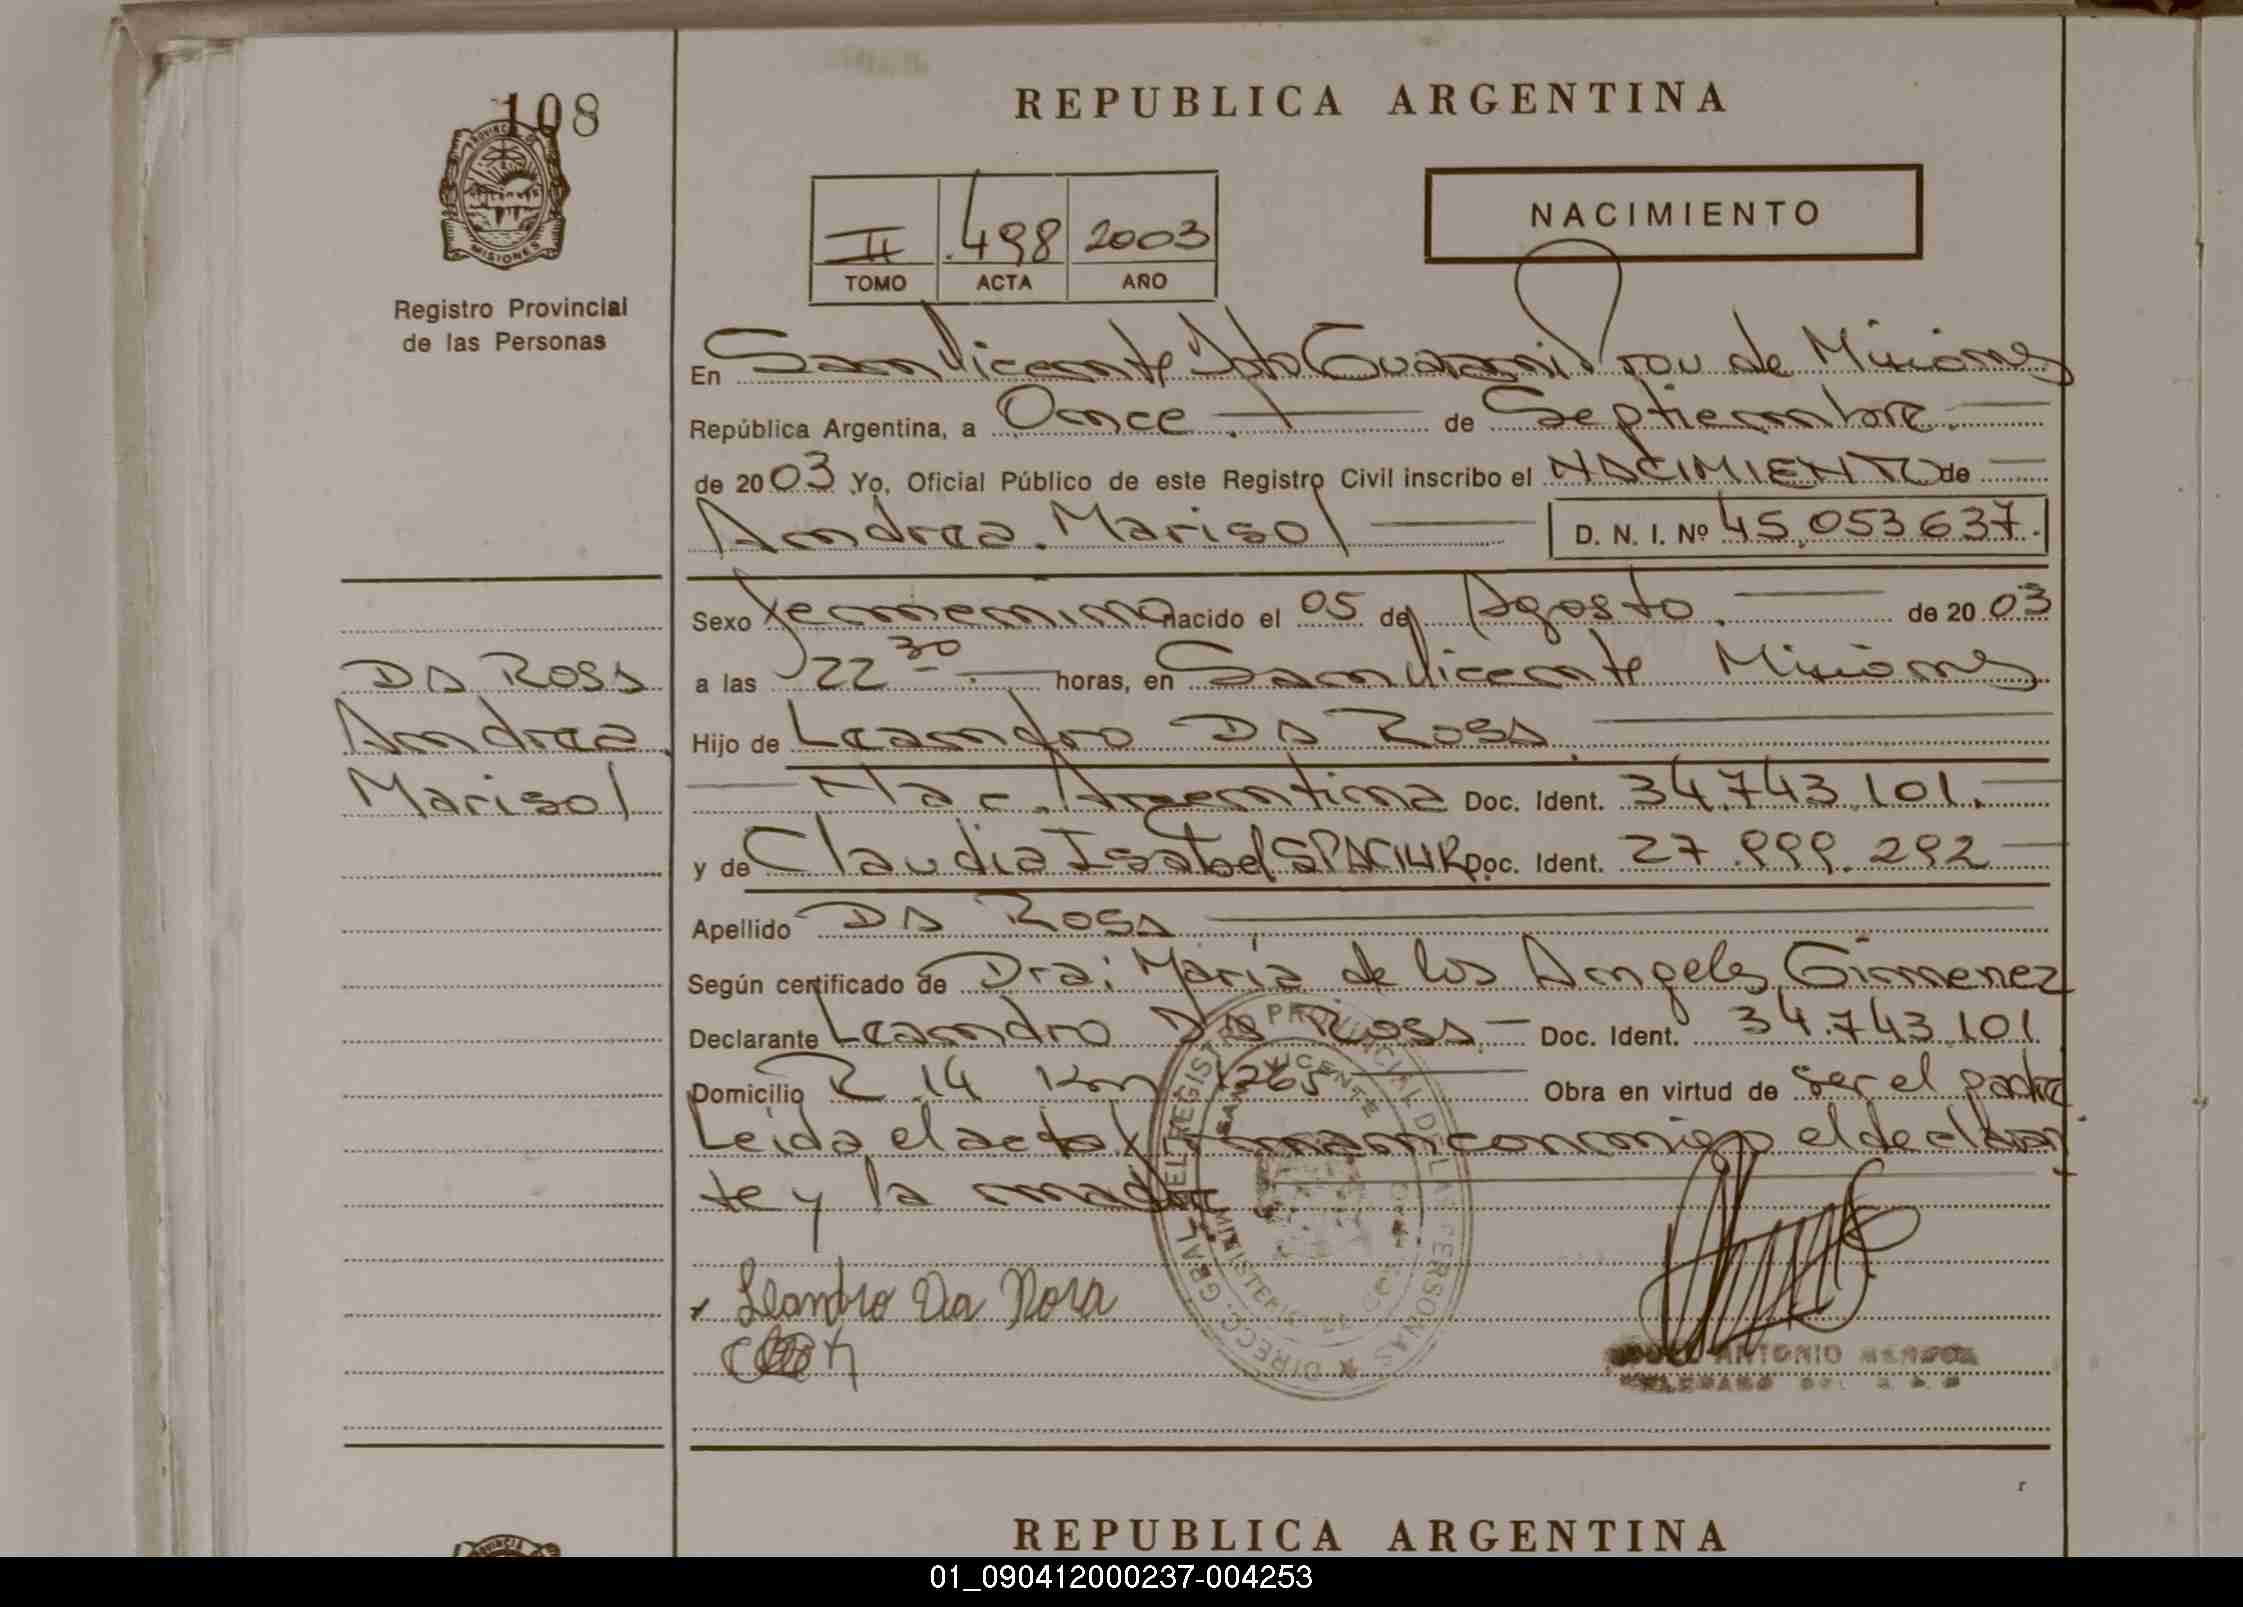 108
PROVINCIA DE
MISIONES
Registro Provincial
de las Personas
REPUBLICA ARGENTINA
II 498 2003
TOMO ACTA AÑO
NACIMIENTO
En San Vicente Dpto Guaraní Prov de Misiones
República Argentina, a Once de Septiembre
de 2003 Yo, Oficial Público de este Registro Civil inscribo el NACIMIENTO de
Andrea Marisol D. N. I. Nº 45.053.637.
Sexo femenino nacido el 05 de Agosto de 2003
a las 22 30 horas, en San Vicente Misiones
Hijo de Leandro DA ROSA
Nac. Argentina Doc. Ident. 34.743.101.
y de Claudia Isabel Doc. Ident. 27.999.292
Apellido DA ROSA
Según certificado de Dra: María de los Angeles Gimenez
Declarante Leandro DA ROSA Doc. Ident. 34.743.101
Domicilio R 14 Km 1265 Obra en virtud de ser el padre
Leida el acta firman conmigo el declaran
te y la madre
DA ROSA
Andrea
Marisol
x Leandro Da Rosa
DIRECC. GRAL. DEL REGISTRO PROVINCIAL DE LAS PERSONAS
SAN VICENTE
MINISTERIO DE GOB
ANTONIO
REPUBLICA ARGENTINA
01_090412000237-004253